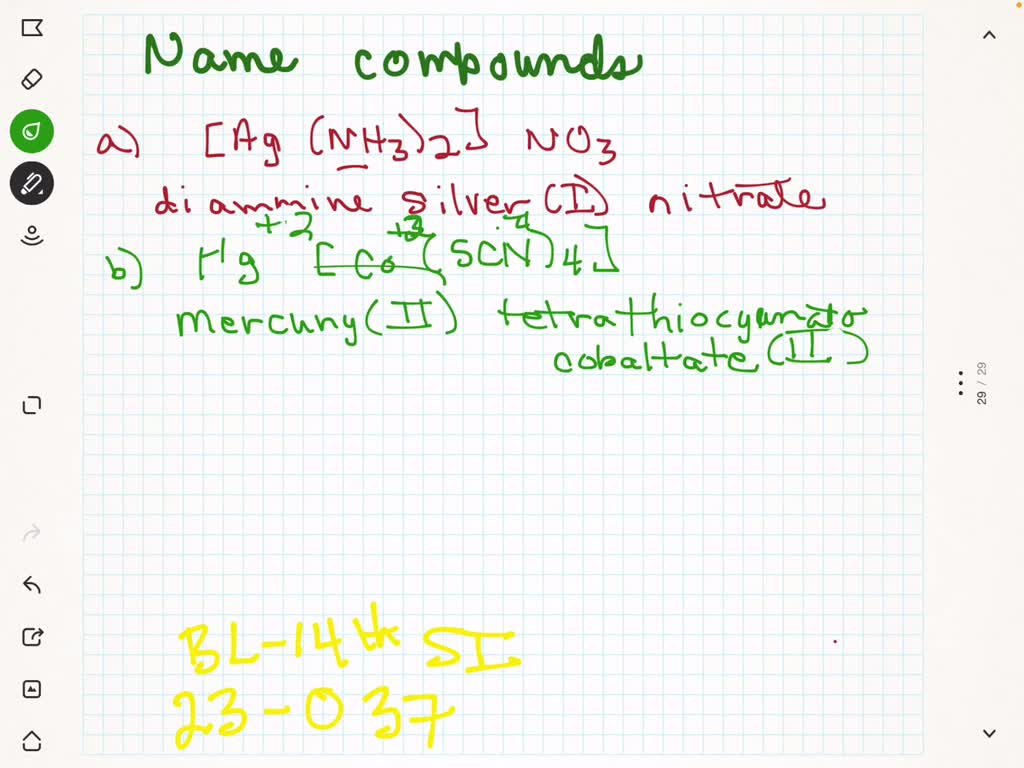 Name compounds
a) [Ag (NH3)2] NO3
diammine silver (I) nitrate
+2 +2 -4
b) Hg [Co (SCN)4]
mercury (II) tetrathiocyanato
cobaltate (II)
29 / 29
BL-14th SI
23-037